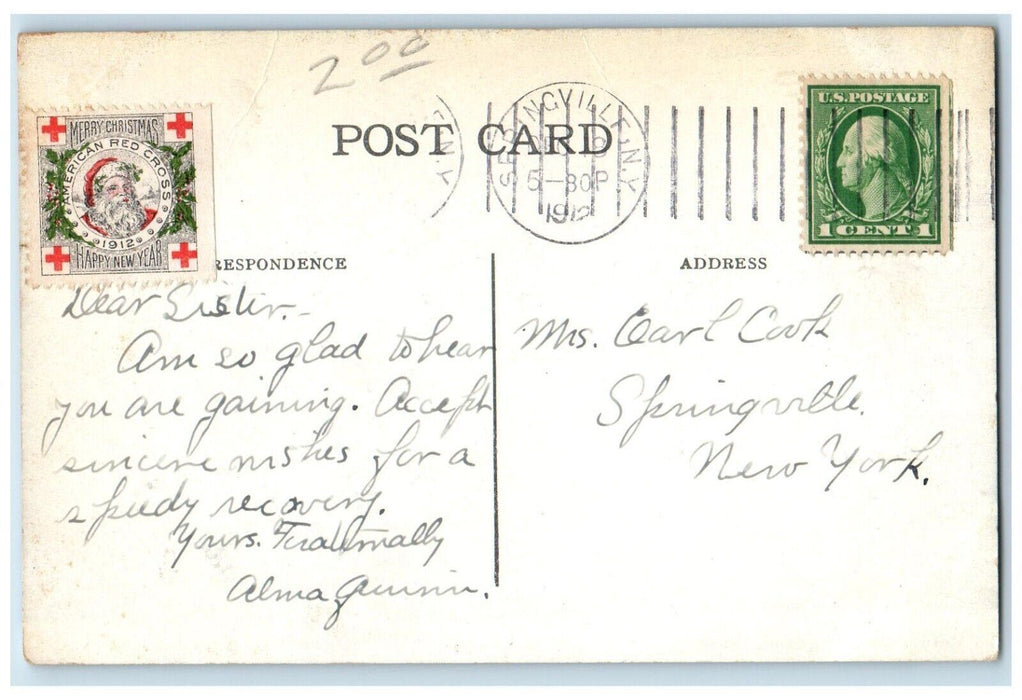 2 00
MERRY CHRISTMAS
AMERICAN RED CROSS
1912
HAPPY NEW YEAR
POST CARD
SPRINGVILLE N.Y.
5-30P
1912
U.S. POSTAGE
1 CENT 1
RESPONDENCE
ADDRESS
Dear Sister.-
Am so glad to hear
you are gaining. Accept
sincere wishes for a
speedy recovery.
Yours. Fraternally
Alma Quinn.
Mrs. Earl Cook
Springville.
New York.